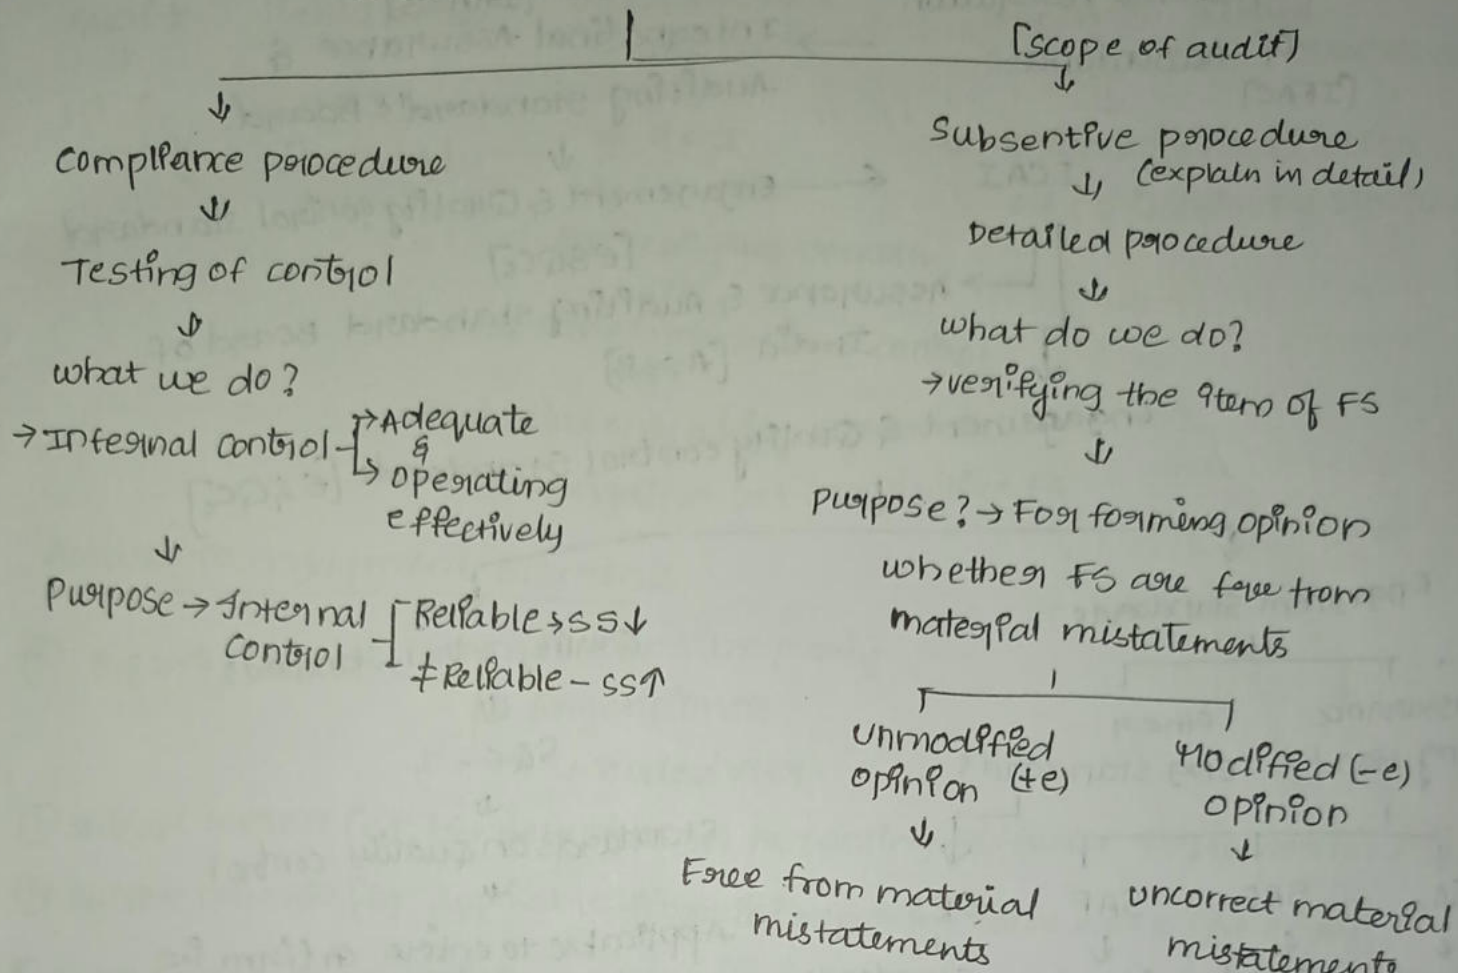 [scope of audit]
Compliance procedure
↓
Testing of control
↓
what we do?
→ Internal control → Adequate
&
→ operating
effectively
↓
Purpose → Internal
control
Reliable → SS↓
≠ Reliable - SS↑
Subsentive procedure
↓ (explain in detail)
Detailed procedure
↓
what do we do?
→ verifying the item of FS
↓
Purpose? → For forming opinion
whether FS are free from
material mistatements
unmodified
opinion (+e)
↓
Free from material
mistatements
Modified (-e)
opinion
↓
uncorrect material
mistatements